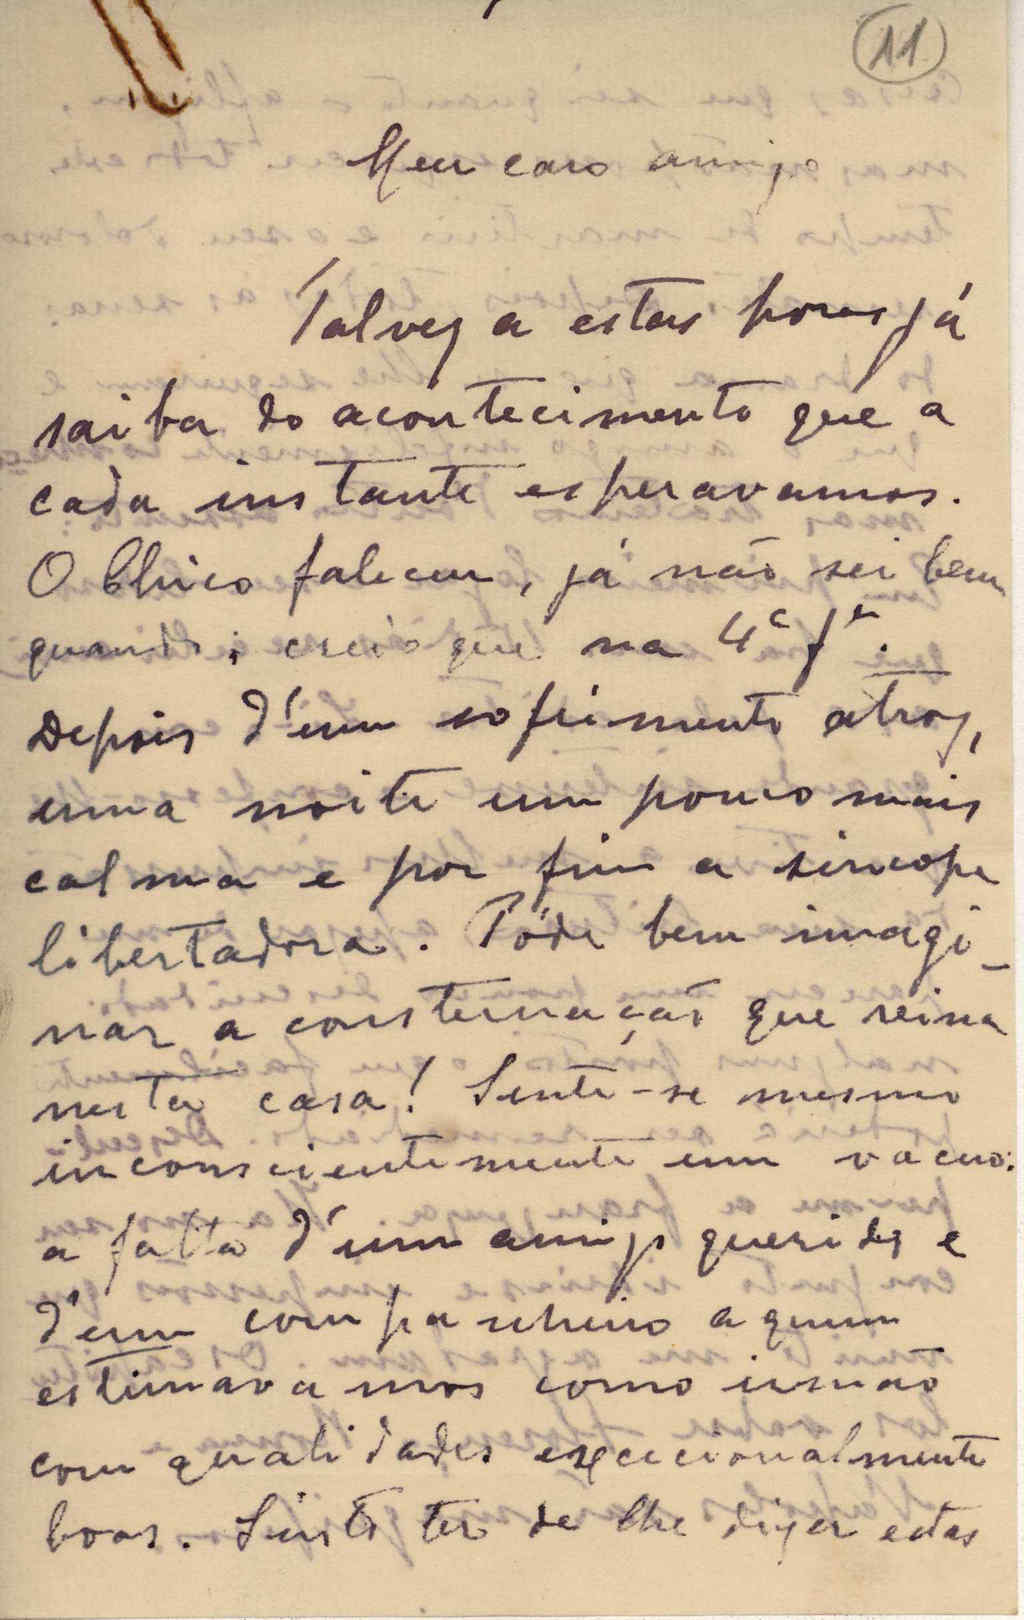 11
Meu caro amigo
Talvez a estas horas já
saiba do acontecimento que a
cada instante esperavamos.
O Chico faleceu, já não sei bem
quando; creio que na 4ª fª.
Depois d'um sofrimento atroz,
uma noite um pouco mais
calma e por fim a sincope
libertadora. Póde bem imagi-
nar a consternação que reina
nesta casa! Sente-se mesmo
inconscientemente um vacuo:
a falta d'um amigo querido e
d'um companheiro a quem
estimavamos como irmão
com qualidades excecionalmente
boas. Sinto ter de lhe dizer estas